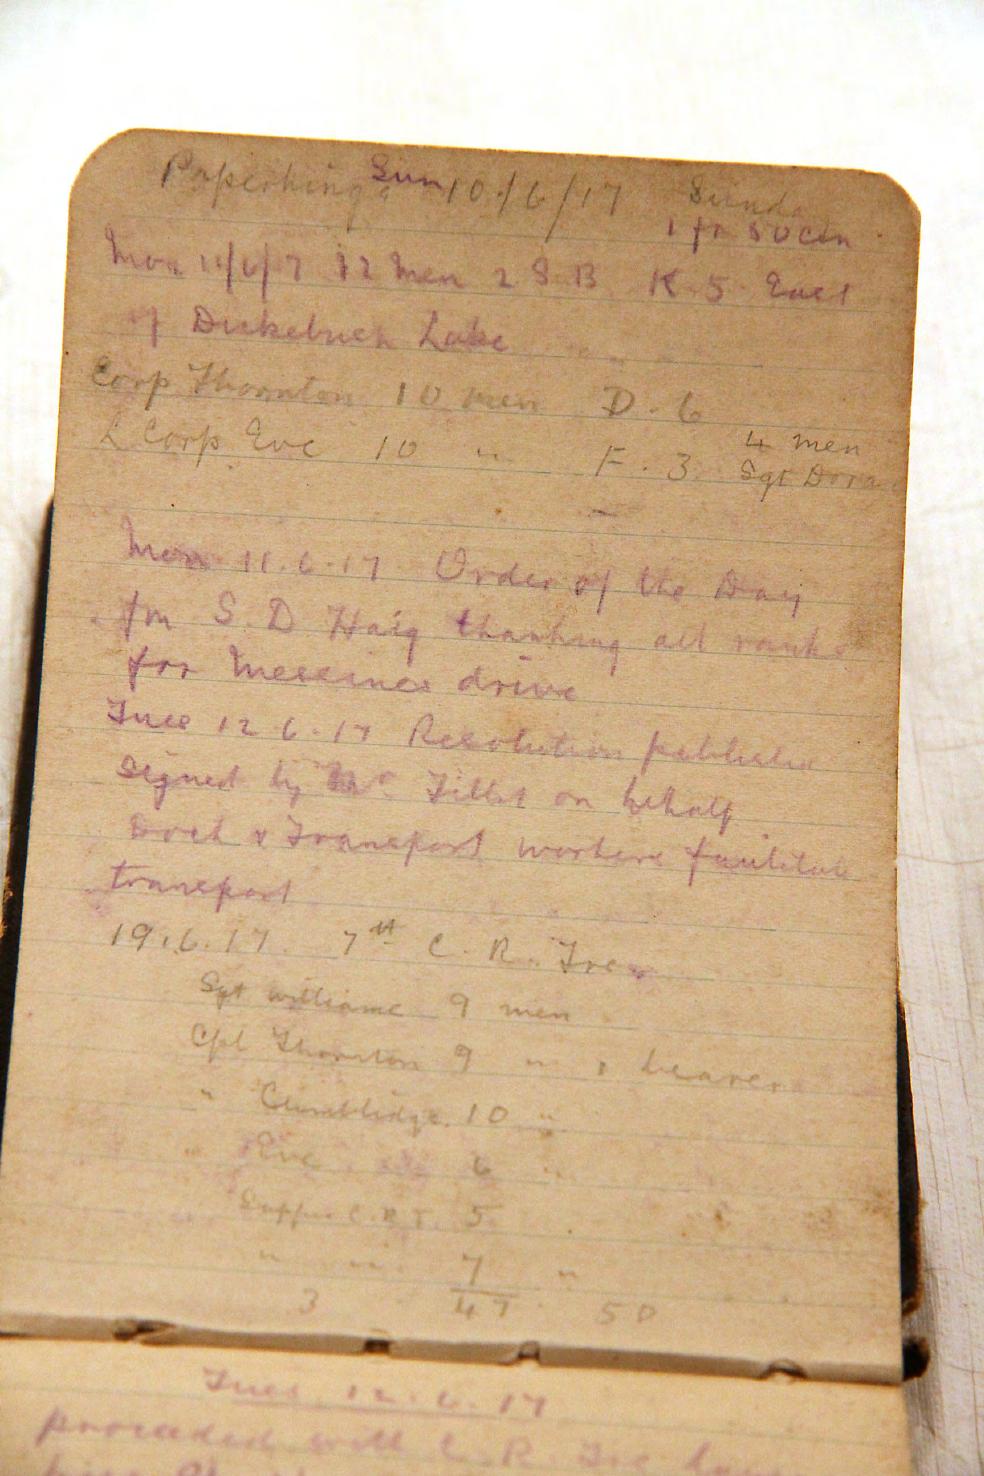 Poperhinge Sun 10/6/17 Sunda
Mon 11/6/7 12 Men 2 S.B K 5 East
of Dickebuch Lake
Corp Thornton 10 men D. 6
L Corp Eve 10 " F. 3. 4 men
Sgt Dora
Mon 11.6.17 Order of the Day
fm S. D Haig thanking all ranks
for Messines drive
Tues 12.6.17 Resolution published
signed by Mr Tillet on behalf
Dock & Transport workers
transport
19.6.17. 7th C. R. Tre
Sgt Williams 9 men
Cpl Thornton 9 " 1 bearer
" 10 "
" Eve 6 "
Sapper C.R.T. 5
" " 7 "
3 47 50
Tues 12.6.17
proceeded with C. R. Tre